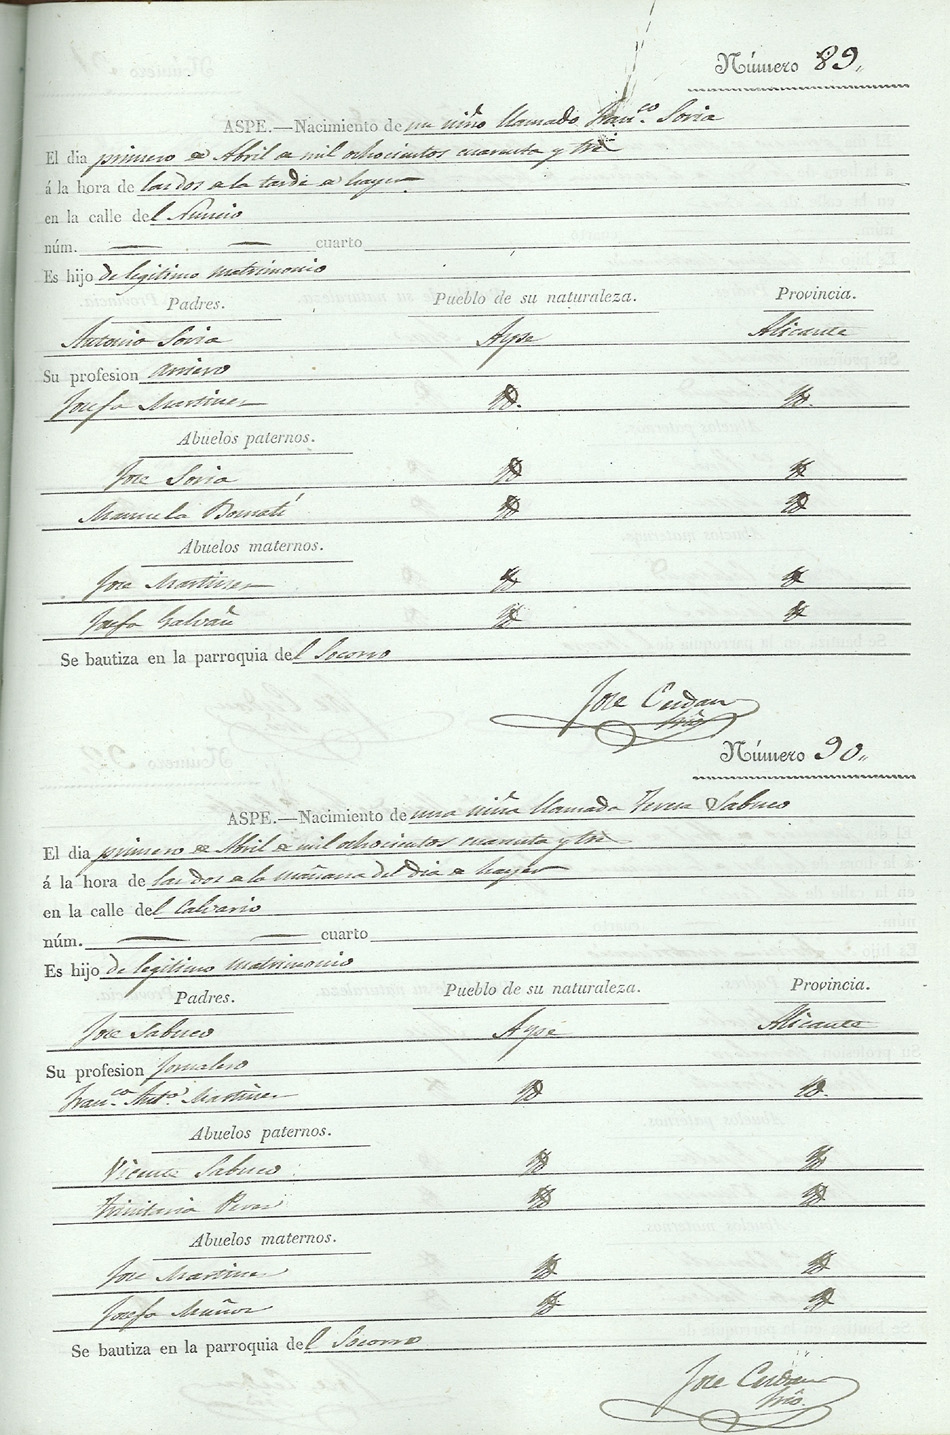 Número 89.
ASPE.—Nacimiento de un niño llamado Fran.co Soria
El dia primero de Abril de mil ochocientos cuarenta y tres
á la hora de las dos de la tarde de hayer
en la calle del Nuncio
núm. — — cuarto
Es hijo de legitimo matrimonio
Padres. Pueblo de su naturaleza. Provincia.
Antonio Soria Aspe Alicante
Su profesion arriero
Josefa Martinez id. id.
Abuelos paternos.
Jose Soria id id
Manuela Bomatí id id
Abuelos maternos.
Jose Martinez id id
Josefa Galvañ id id
Se bautiza en la parroquia del Socorro
Jose Cerdan
Srio
Número 90.
ASPE.—Nacimiento de una niña llamada Teresa Sabuco
El dia primero de Abril de mil ochocientos cuarenta y tres
á la hora de las dos de la mañana del dia de hayer
en la calle del Calvario
núm. — — cuarto
Es hijo de legitimo matrimonio
Padres. Pueblo de su naturaleza. Provincia.
Jose Sabuco Aspe Alicante
Su profesion Jornalero
Fran.ca Ant.a Martinez id id.
Abuelos paternos.
Vicente Sabuco id id
Trinitaria Perez id id
Abuelos maternos.
Jose Martinez id id
Josefa Muñoz id id
Se bautiza en la parroquia del Socorro
Jose Cerdan
Srio.